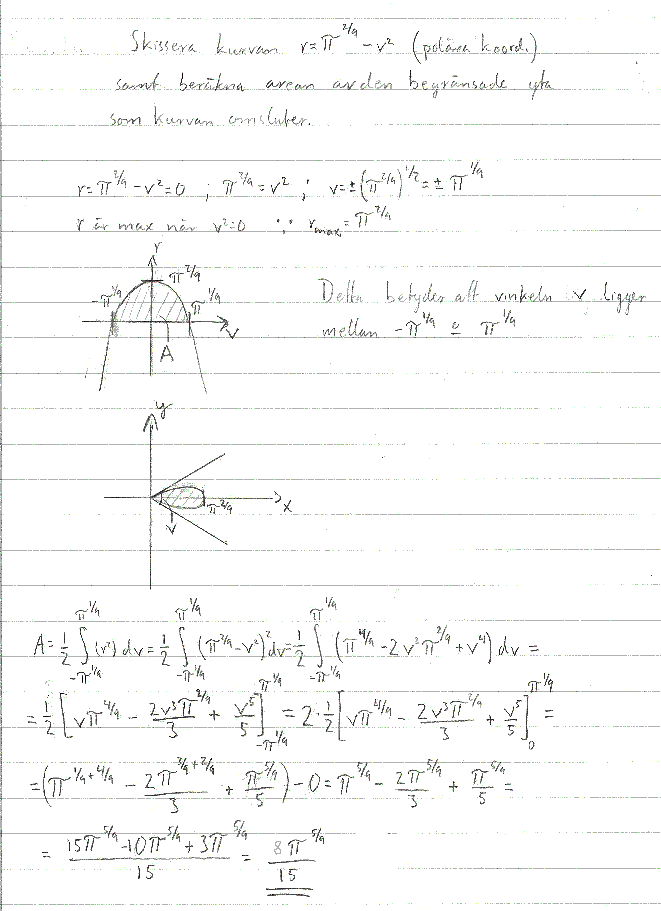 Skissera kurvan r=π^{2/9} - v² (polära koord.)
samt beräkna arean av den begränsade yta
som kurvan omsluter.
r = π^{2/9} - v² = 0 ; π^{2/9} = v² ; v = ±(π^{2/9})^{1/2} = ± π^{1/9}
r är max när v²=0 ∵ r_{max} = π^{2/9}
r
π^{2/9}
-π^{1/9} π^{1/9}
v
A
Detta betyder att vinkeln v ligger
mellan -π^{1/9} o π^{1/9}
y
x
π^{2/9}
v
A = 1/2 ∫_{-π^{1/9}}^{π^{1/9}} (r²) dv = 1/2 ∫_{-π^{1/9}}^{π^{1/9}} (π^{2/9} - v²)² dv = 1/2 ∫_{-π^{1/9}}^{π^{1/9}} (π^{4/9} - 2v²π^{2/9} + v⁴) dv =
= 1/2 [vπ^{4/9} - 2v³π^{2/9}/3 + v⁵/5]_{-π^{1/9}}^{π^{1/9}} = 2·1/2 [vπ^{4/9} - 2v³π^{2/9}/3 + v⁵/5]_0^{π^{1/9}} =
= (π^{1/9+4/9} - 2π^{3/9+2/9}/3 + π^{5/9}/5) - 0 = π^{5/9} - 2π^{5/9}/3 + π^{5/9}/5 =
= (15π^{5/9} - 10π^{5/9} + 3π^{5/9})/15 = 8π^{5/9}/15